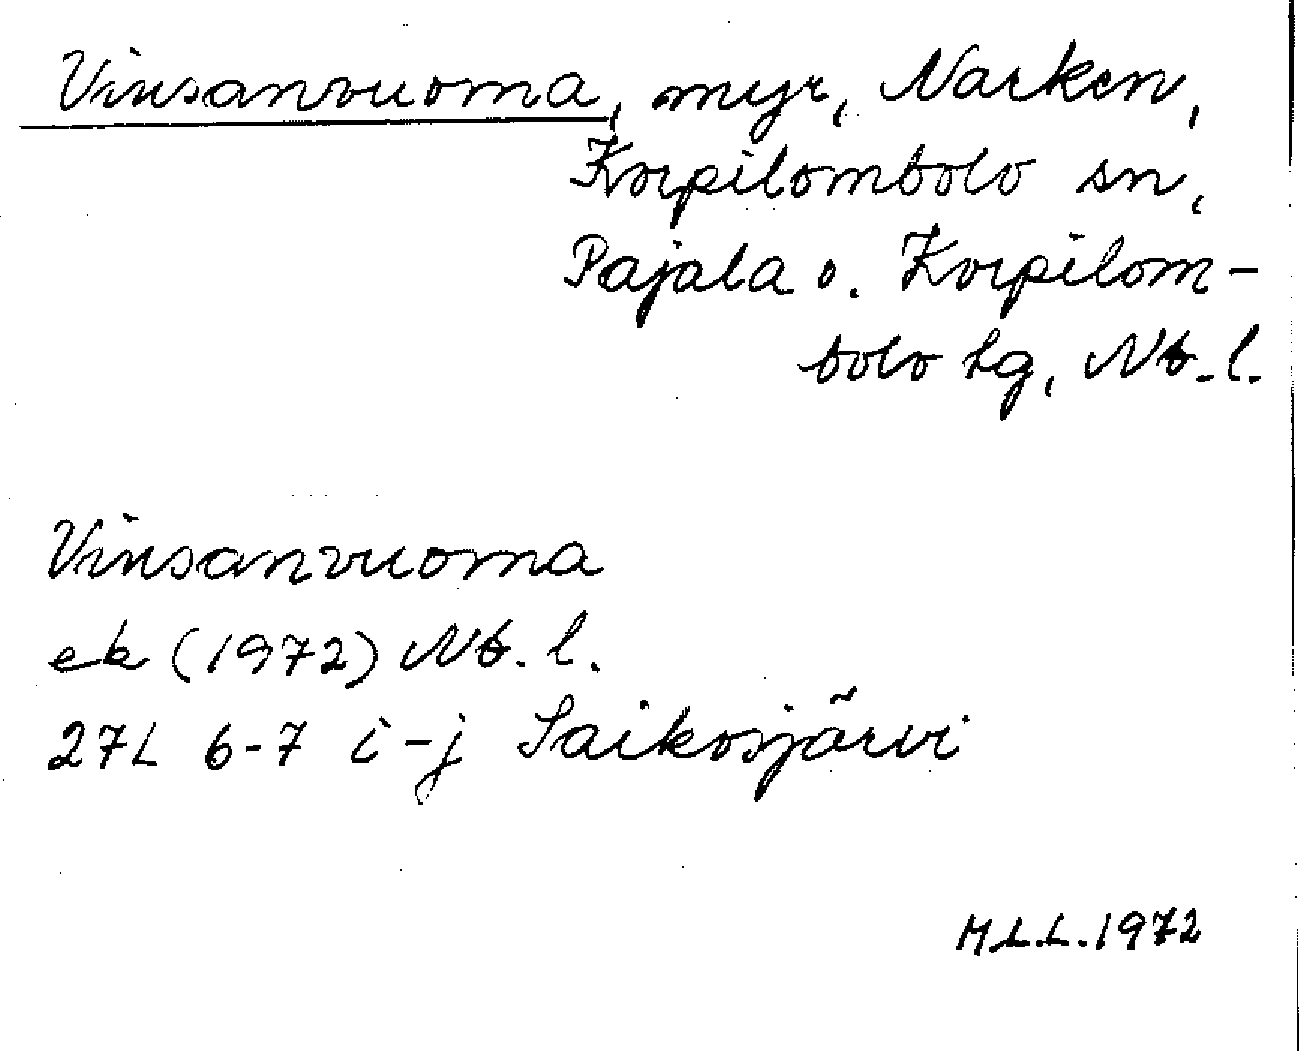 Vinsanvuoma, myr, Narken,
Korpilombolo sn,
Pajala o. Korpilom-
bolo tg, Nb. l.
Vinsanvuoma
ek (1972) Nb. l.
27L 6-7 i-j Saikosjärvi
M.L.L. 1972